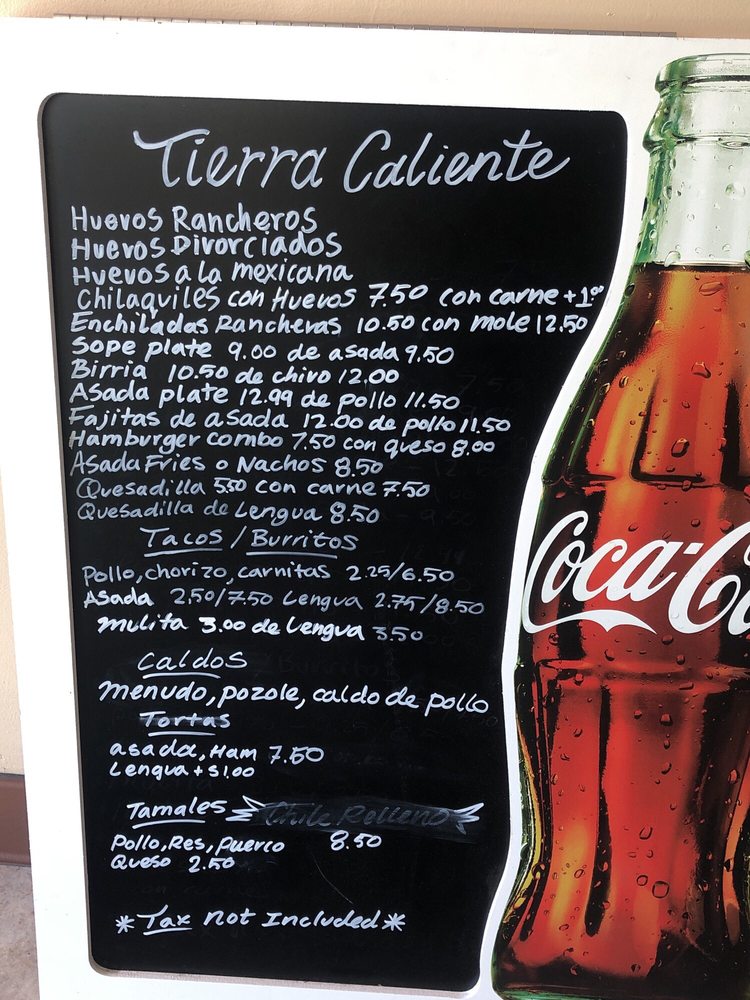 Tierra Caliente
Huevos Rancheros
Huevos Divorciados
Huevos a la mexicana
Chilaquiles con Huevos 7.50 con carne +1.00
Enchiladas Rancheras 10.50 con mole 12.50
Sope plate 9.00 de asada 9.50
Birria 10.50 de chivo 12.00
Asada plate 12.99 de pollo 11.50
Fajitas de asada 12.00 de pollo 11.50
Hamburger combo 7.50 con queso 8.00
Asada Fries o Nachos 8.50
Quesadilla 5.50 con carne 7.50
Quesadilla de Lengua 8.50
Tacos / Burritos
Pollo, chorizo, carnitas 2.25/6.50
Asada 2.50/7.50 Lengua 2.75/8.50
mulita 3.00 de Lengua 3.50
Caldos
menudo, pozole, caldo de pollo
Tortas
asada, Ham 7.50
Lengua + $1.00
Tamales Chile Relleno
Pollo, Res, puerco 8.50
Queso 2.50
*Tax not Included*
Coca-Co